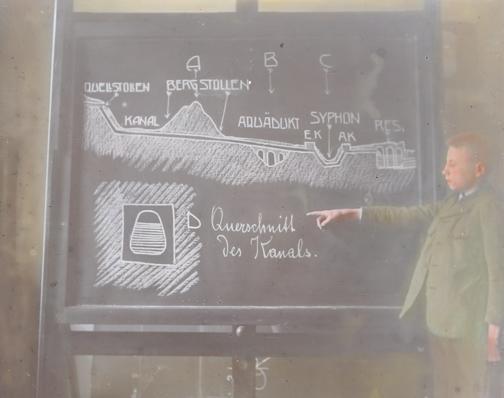 A B C
QUELLSTOLLEN BERGSTOLLEN
KANAL AQUÄDUKT SYPHON
EK AK RES.
D Querschnitt
des Kanals.